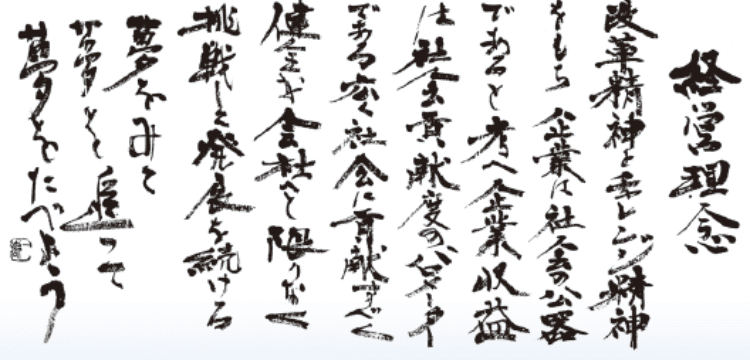 経営理念
改革精神とチャレンジ精神
をもち 企業は社会の公器
であると考へ企業収益
は社会貢献度のバロメーター
である広く社会に貢献すべく
健全な会社へと限りなく
挑戦し発展を続ける
夢をみて
夢を追って
夢をたべよう